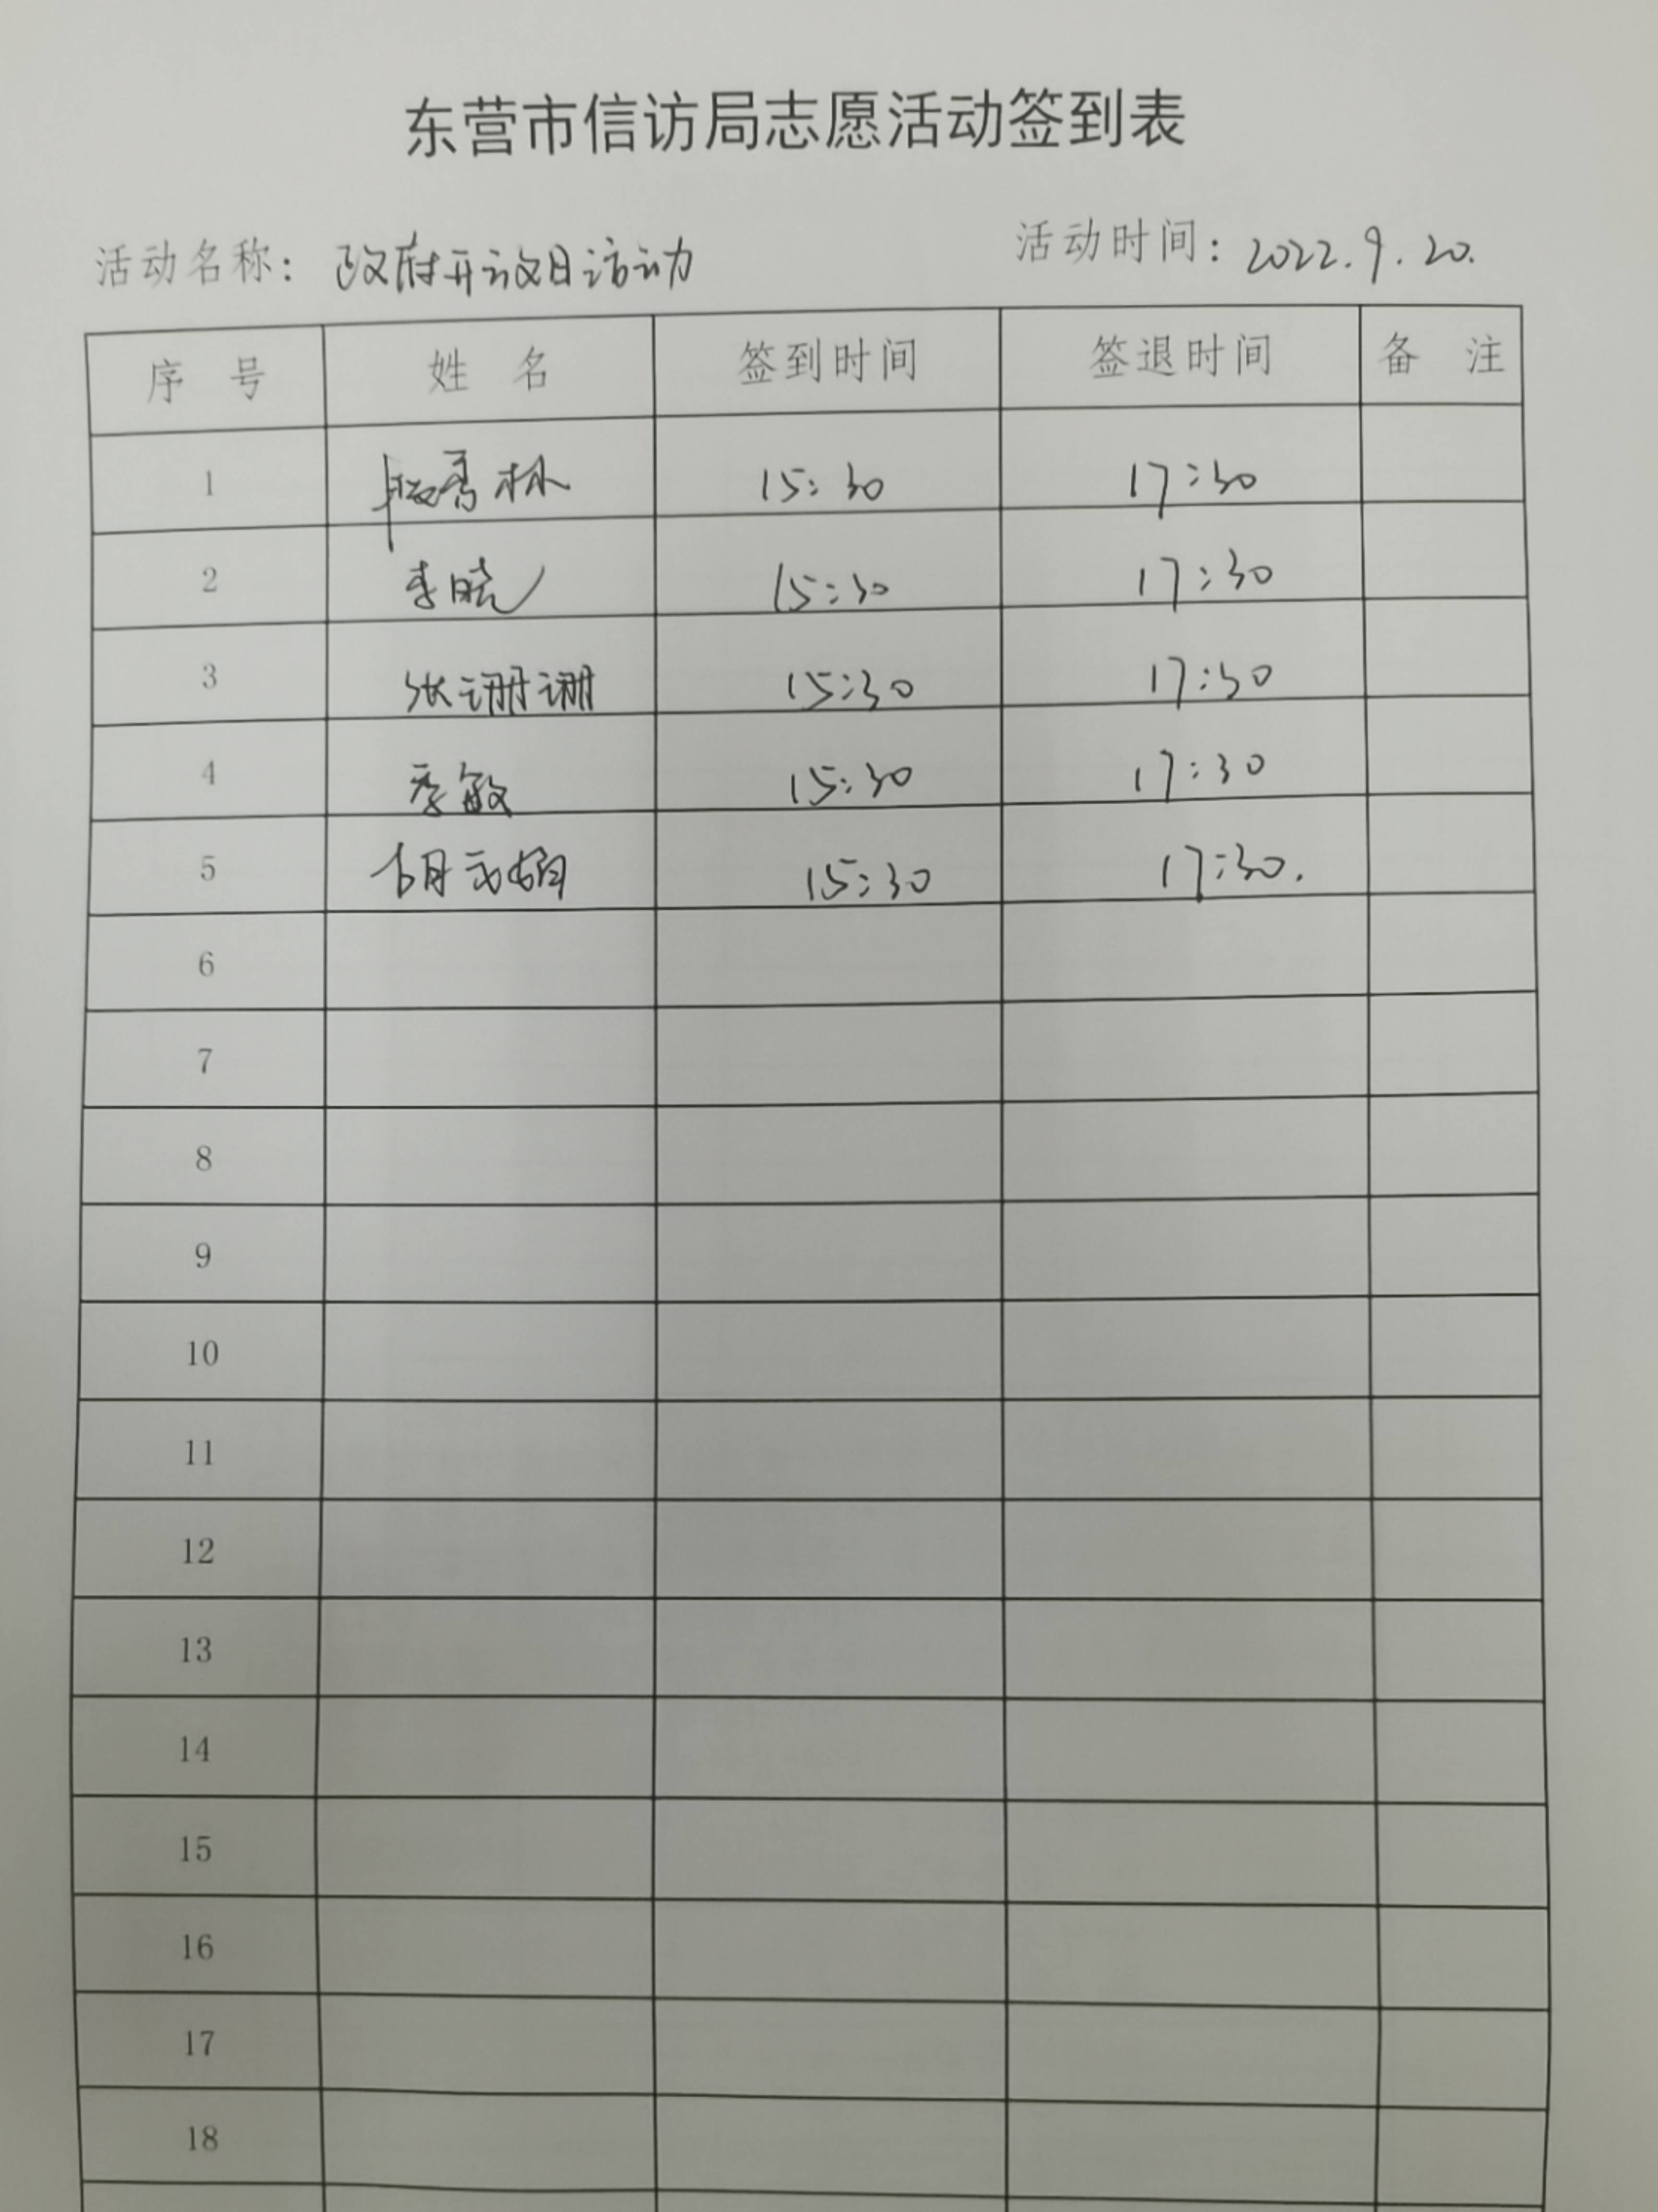 东营市信访局志愿活动签到表
活动名称：政府开放日活动 活动时间：2022.9.20.
序号 姓名 签到时间 签退时间 备注
1 段秀林 15:30 17:30
2 李晓 15:30 17:30
3 张珊珊 15:30 17:30
4 李敏 15:30 17:30
5 15:30 17:30.
6
7
8
9
10
11
12
13
14
15
16
17
18